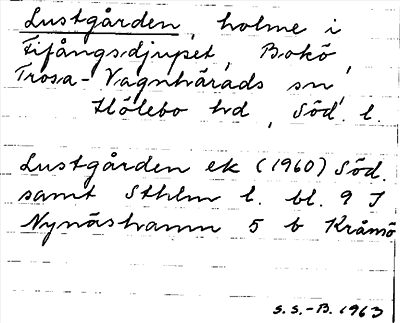 Lustgården, holme i
Fifångsdjupet, Bokö,
Trosa-Vagnhärads sn,
Hölebo hd, Söd. l.
Lustgården ek (1960) Söd.
samt Sthlm l. bl. 9 I
Nynäshamn 5 b Kråmö
S.S.-B. 1963